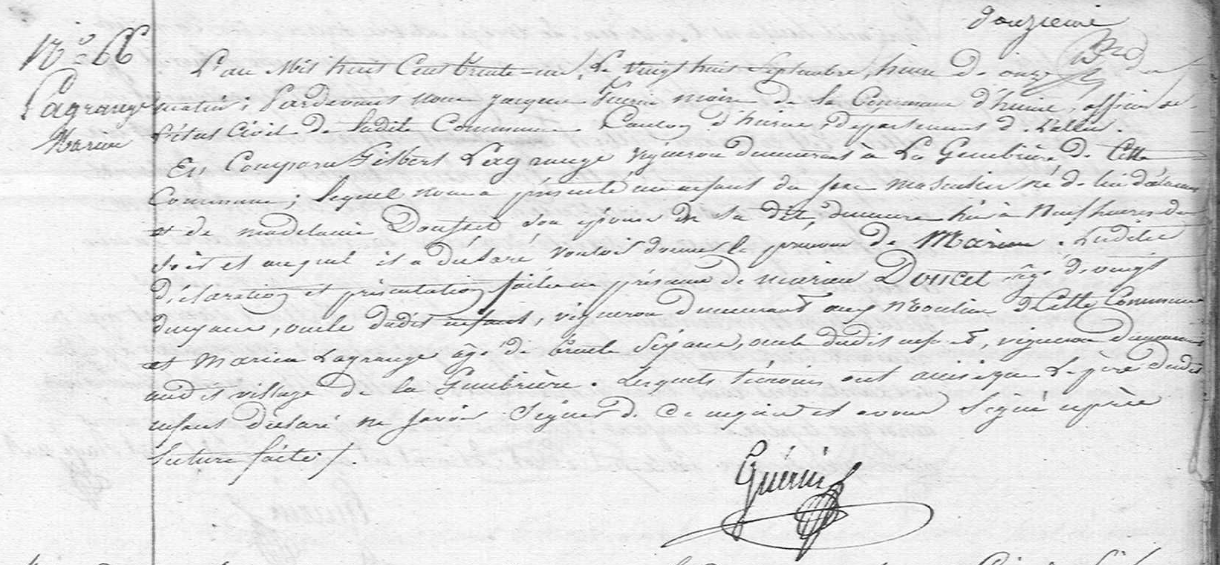 douzieme
N° 66
Lagrange
Marien
L'an Mil huit Cent trente-un, Le vingt huit Septembre, heure de onze du
matin; Pardevant nous jacques Guerin maire de la Commune d'huriel, officier de
l'état Civil de ladite Commune Canton d'huriel, département de Lallier.
Est Comparu Gilbert Lagrange vigneron demeurant à La Genebrière de Cette
Commune; lequel nous a présenté un enfant du sexe masculin né de lui déclarant
et de madelaine Doucet son épouse en sa dite demeure hier à Neuf heures du
soir et auquel il a déclaré vouloir donner le prenom de Marien. Ladite
déclaration et présentation faite en présence de marien Doucet âgé de vingt
ans, oncle dudit enfant, vigneron demeurant aux Moulin de Cette Commune
et Marien Lagrange âgé de trente Six ans, oncle dudit enfant, vigneron demeurant
audit village de la Genebrière. Lesquels témoins ont ainsi que le père dudit
enfant déclaré ne savoir Signer de ce requis et avons Signé après
lecture faite.
Guérin